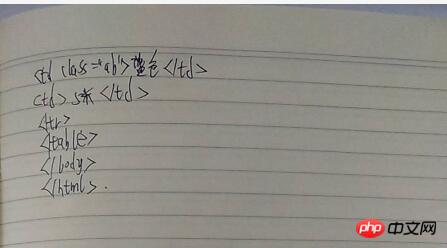 <td class="ab">蓝色</td>
<td>5米</td>
<tr>
<table>
</body>
</html>.
php 中文网